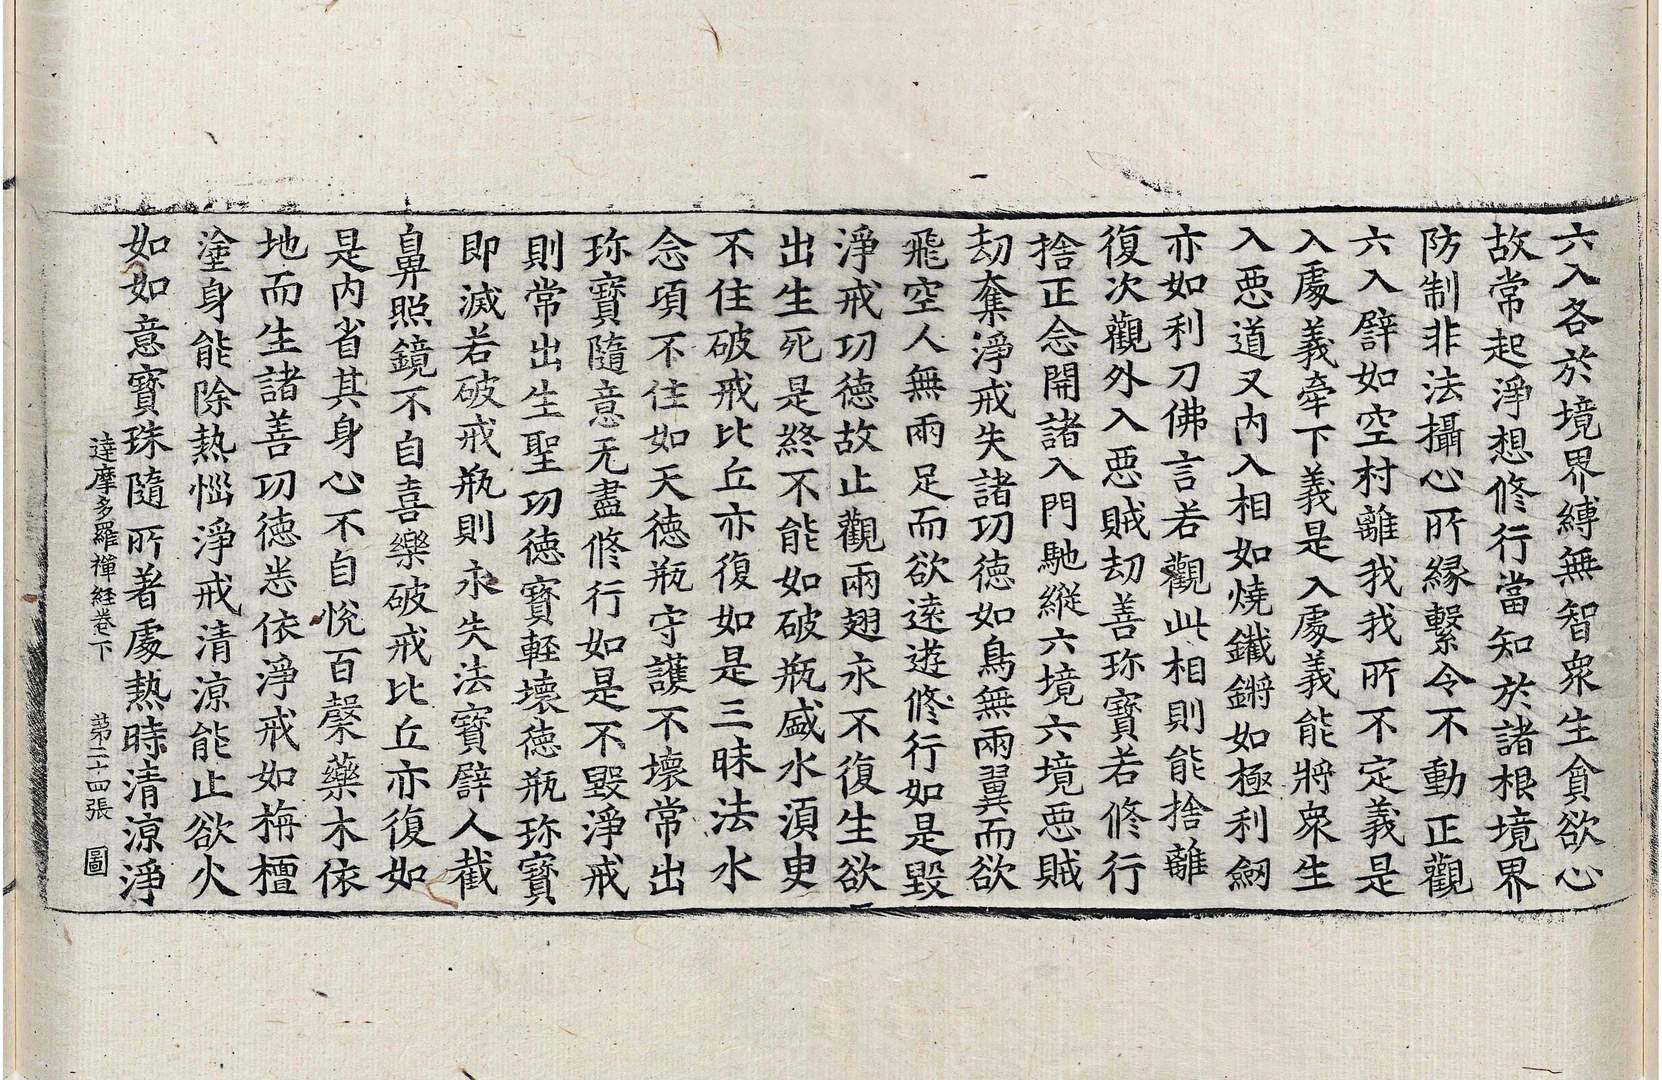 六入各於境界縛無智衆生貪欲心
故常起淨想修行當知於諸根境界
防制非法攝心所緣繫令不動正觀
六入譬如空村離我我所不定義是
入處義牽下義是入處義能將衆生
入惡道又內入相如燒鐵鏘如極利劒
亦如利刀佛言若觀此相則能捨離
復次觀外入惡賊劫善珎寶若修行
捨正念開諸入門馳縱六境六境惡賊
劫奪淨戒失諸功德如鳥無兩翼而欲
飛空人無兩足而欲遠遊修行如是毀
淨戒功德故止觀兩翅永不復生欲
出生死是終不能如破瓶盛水湏臾
不住破戒比丘亦復如是三昧法水
念頃不住如天德瓶守護不壞常出
珎寶隨意无盡修行如是不毀淨戒
則常出生聖功德寶輕壞德瓶珎寶
即滅若破戒瓶則永失法寶譬人截
鼻照鏡不自喜樂破戒比丘亦復如
是內省其身心不自悅百藥藥木依
地而生諸善功德悉依淨戒如栴檀
塗身能除熱惱淨戒清涼能止欲火
如如意寶珠隨所著處熱時清涼淨
達摩多羅禪経卷下 苐二十四張 圖